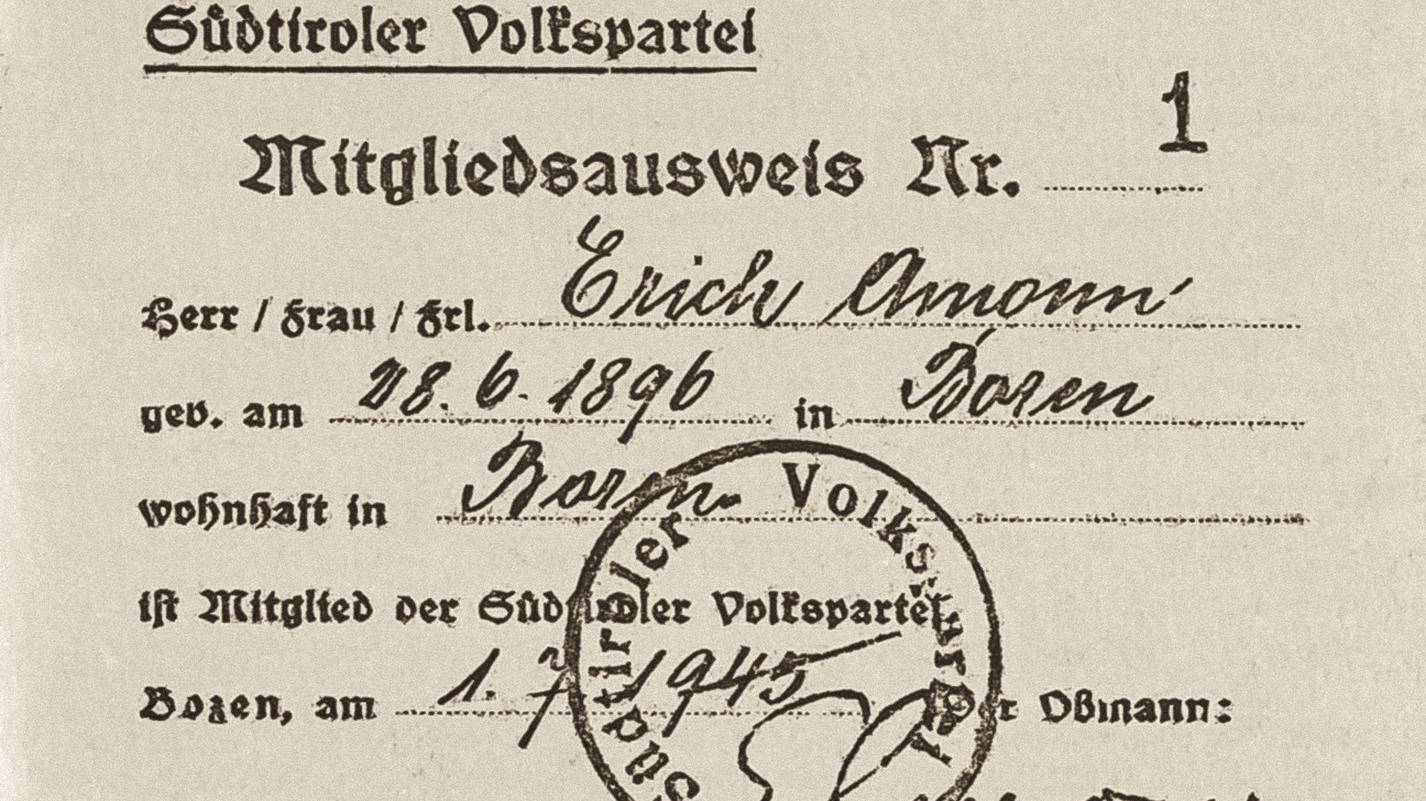 Südtiroler Volkspartei
Mitgliedsausweis Nr. 1
Herr / Frau / Frl. Erich Amonn
geb. am 28. 6. 1896 in Bozen
wohnhaft in Bozen
ist Mitglied der Südtiroler Volkspartei
Bozen, am 1. 7. 1945 Der Obmann:
Südtiroler Volkspartei